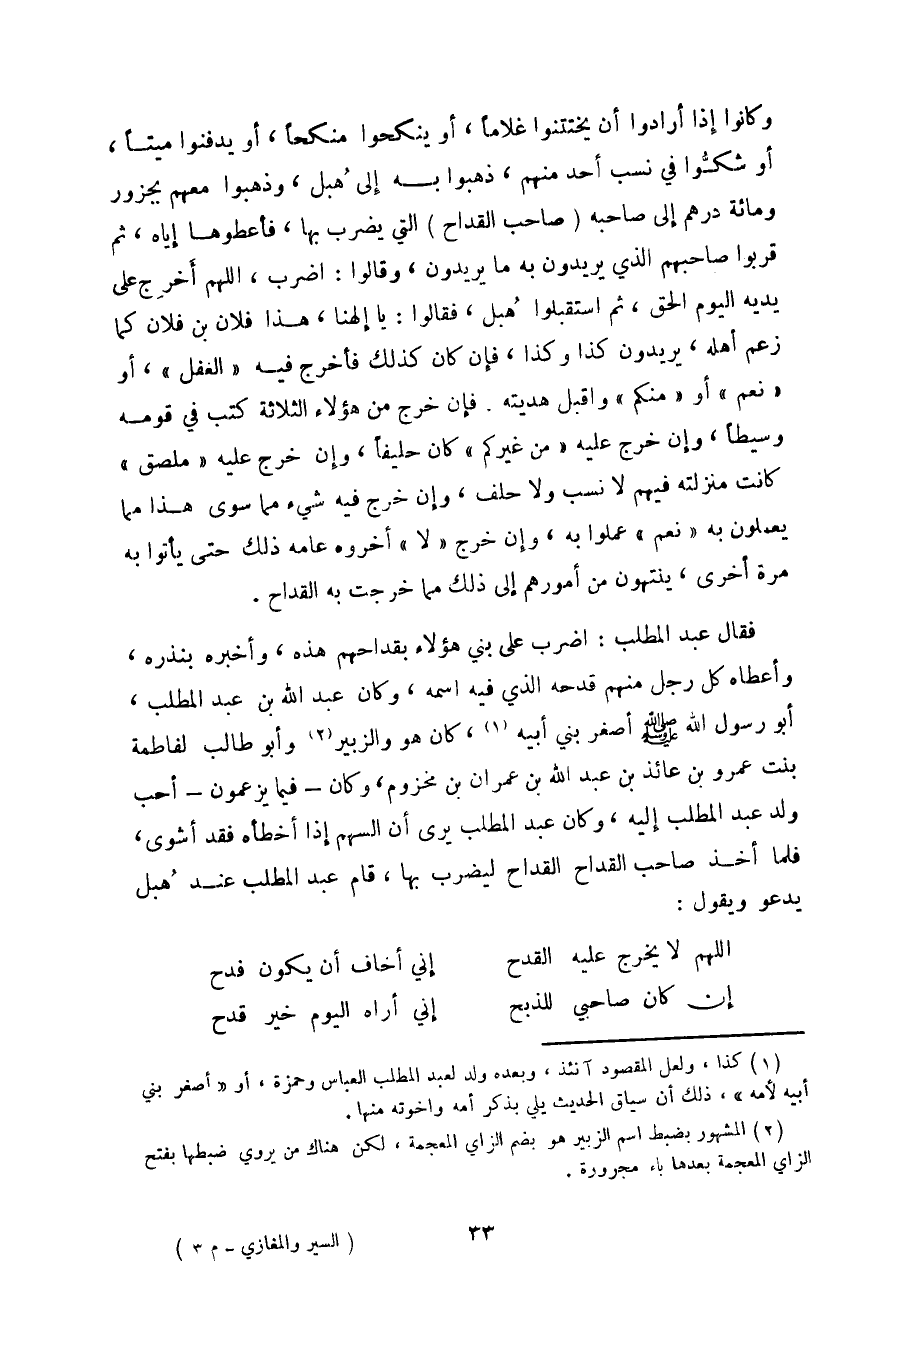 وكانوا إذا أرادوا أن يختتنوا غلاماً ، أو ينكحوا منكحاً ، أو يدفنوا ميتاً ،
أو شكوُّا في نسب أحد منهم ، ذهبوا به إلى هُبل ، وذهبوا معهم بجزور
ومائة درهم إلى صاحبه ( صاحب القداح ) التي يضرب بها ، فأعطوها إياه ، ثم
قربوا صاحبهم الذي يريدون به ما يريدون ، وقالوا : اضرب ، اللهم أَخرِج على
يديه اليوم الحق ، ثم استقبلوا هُبل ، فقالوا : يا إلهنا ، هذا فلان بن فلان كما
زعم أهله ، يريدون كذا وكذا ، فإن كان كذلك فأخرج فيه « الغفل » ، أو
« نعم » أو « منكم » واقبل هديته . فإن خرج من هؤلاء الثلاثة كتب في قومه
وسيطاً ، وإن خرج عليه « من غيركم » كان حليفاً ، وإن خرج عليه « ملصق »
كانت منزلته فيهم لا نسب ولا حلف ، وإن خرج فيه شيء مما سوى هذا مما
يعملون به « نعم » عملوا به ، وإن خرج « لا » أخروه عامه ذلك حتى يأتوا به
مرة أخرى ، ينتهون من أمورهم إلى ذلك مما خرجت به القداح .
فقال عبد المطلب : اضرب على بني هؤلاء بقداحهم هذه ، وأخبره بنذره ،
وأعطاه كل رجل منهم قدحه الذي فيه اسمه ، وكان عبد الله بن عبد المطلب ،
أبو رسول الله ﷺ أصغر بني أبيه (١) ، كان هو والزبير(٢) وأبو طالب لفاطمة
بنت عمرو بن عائذ بن عبد الله بن عمران بن مخزوم، وكان – فيما يزعمون – أحب
ولد عبد المطلب إليه ، وكان عبد المطلب يرى أن السهم إذا أخطأه فقد أشوى،
فلما أخذ صاحب القداح القداح ليضرب بها ، قام عبد المطلب عند هُبل
يدعو ويقول :
اللهم لا يخرج عليه القدح إني أخاف أن يكون فدح
إن كان صاحبي للذبح إني أراه اليوم خير قدح
(١) كذا ، ولعل المقصود آنئذ ، وبعده ولد لعبد المطلب العباس وحمزة ، أو « أصغر بني
أبيه لأمه » ، ذلك أن سياق الحديث يلي بذكر أمه واخوته منها .
(٢) المشهور بضبط اسم الزبير هو بضم الزاي المعجمة ، لكن هناك من يروي ضبطها بفتح
الزاي المعجمة بعدها باء مجرورة .
٣٣
( السير والمغازي - م ٣ )